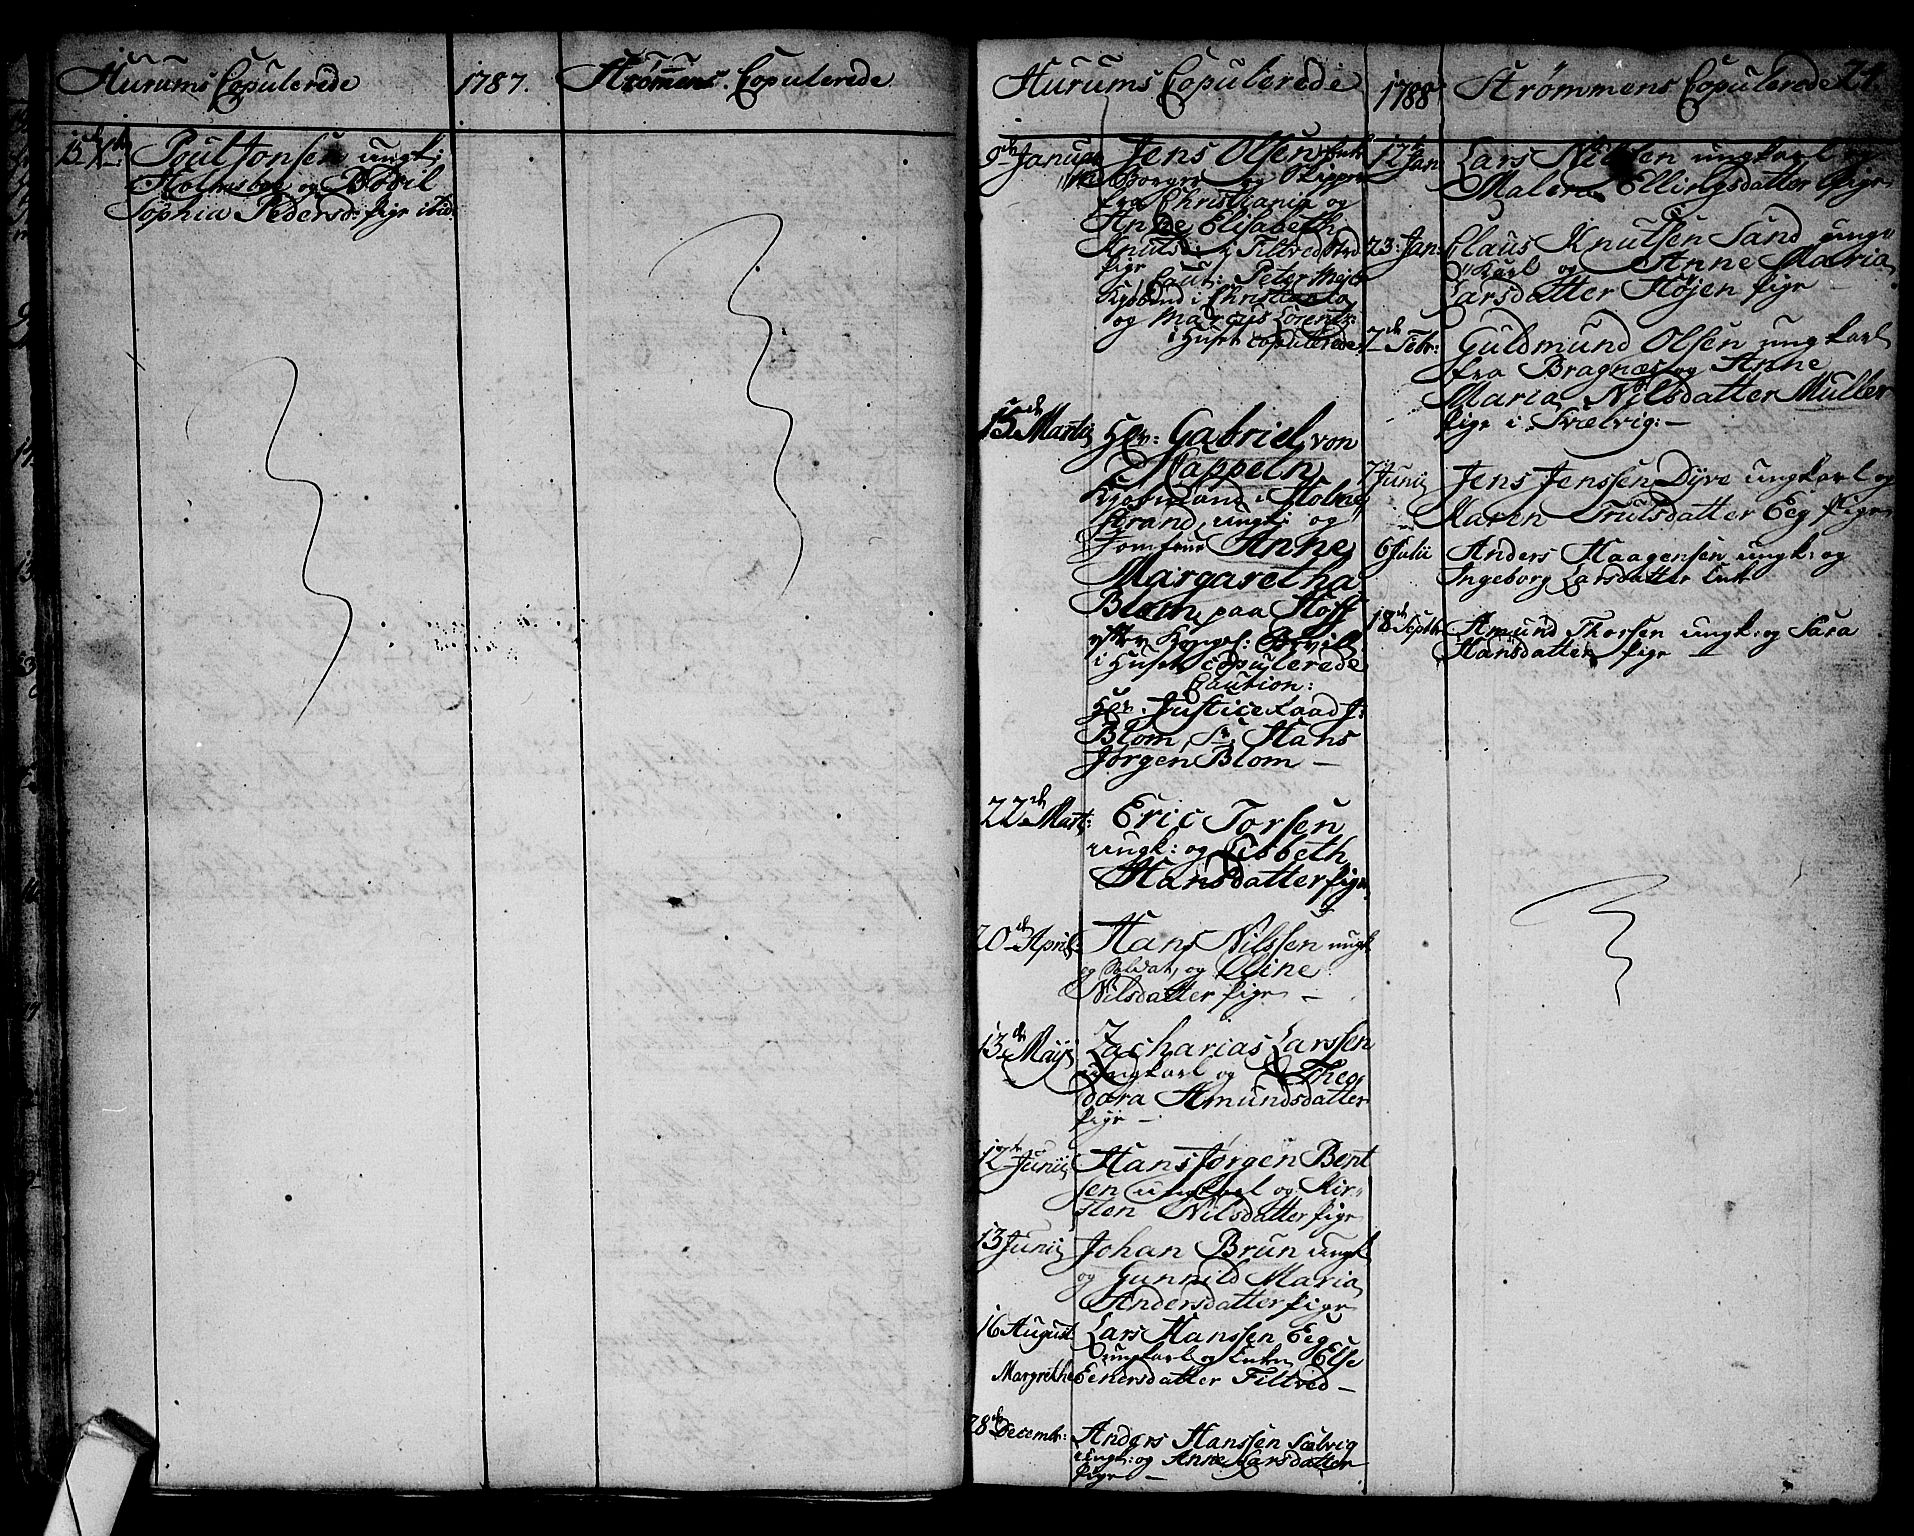 Hurums Copulerede
1787.
Strømmens Copulerede
Poul Jonsen ungk:
Holmsboe og Bodil
Sophia Pedersd: pige ibid:
Hurums Copulerede
1788
Strømmens Copulerede
24.
9de Januar
Jens Olsen Enke
Borger og Skipper
fra Christiania og
Anne Elisabeth
Knutsd: i Filtved
pige
Caut: Peter Mejer
Kjøbmd i Christiania
og Marcus Lorentz:
i Huset copulerede
15de Martij
Hr: Gabriel von
Happeln
Kjøbmand i Holme
strand, ungk: og
Jomfrue Anne
Margaretha
Blom, paa Hoff
efter Kongel: Bevil:
i Huset copulerede
Caution:
Hr: Justice Raad J:
Blom, Sr. Hans
Jørgen Blom —
22de Mart:
Eric Torsen
ungk: og Lisbeth
Hansdatter pige
20de April:
Hans Nilssen ungk
og Soldat, og Eline
Nilsdatter pige —
13de Maij
Zacharias Larssen
ungkarl og Theo
dora Amundsdatter
pige —
12te Junij
Hans Jørgen Bent
sen ungkarl og Kir
sten Nilsdatter pige
13 Junij
Johan Brun ungk
og Gunnild Maria
Andersdatter pige
16 August
Lars Hanssen Eeg
ungkarl og Enken Else
Margrethe Enersdatter Filtved —
28de Decembr:
Anders Hanssen Sælvig
ungk: og Anne Larsdatter
pige —
12te Jan
Lars Nilssen ungkarl og
Malene Ellingsdatter pige
23: Jan:
Claus Knutsen Sand ung
karl og Anne Maria
Larsdatter Højen pige —
7de Febr:
Guldmund Olsen ungkarl
fra Bragnæs og Anne
Maria Nilsdatter Muller
pige i Svelvig: —
7 Junij
Jens Jenssen Dyve ungkarl og
Maren Trulsdatter Eeg pige
6 Julii
Anders Haagensen ungk: og
Ingeborg Larsdatter Enke
18de Septbr
Amund Thorsen ungk: og Sara
Hansdatter pige —